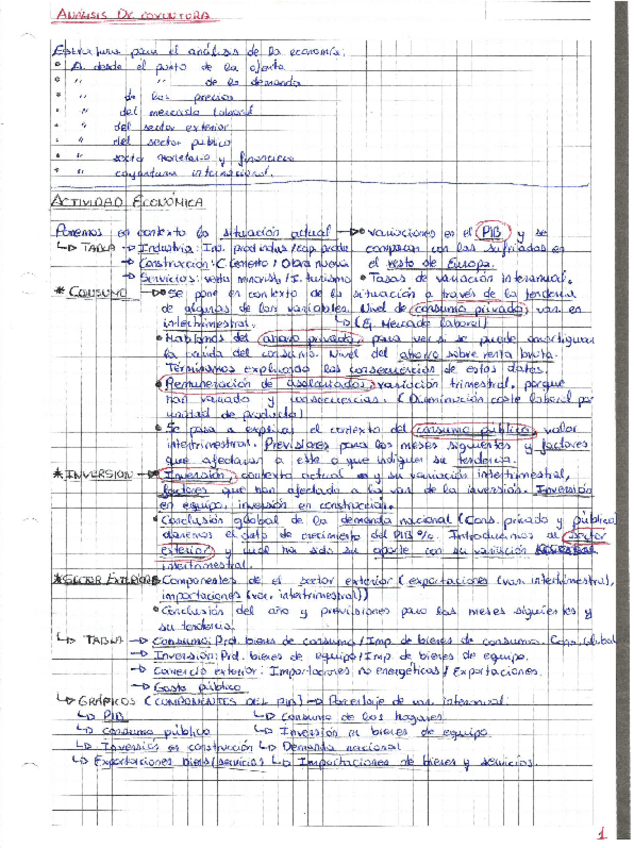 ANÁLISIS DE COYUNTURA
Estructura para el análisis de la economía:
• A. desde el punto de la oferta
• " " de la demanda
• " de los precios
• " del mercado laboral
• " del sector exterior
• " del sector público
• " sector monetario y financiero
• " coyuntura internacional.
ACTIVIDAD ECONÓMICA
Ponemos en contexto la situación actual → • variaciones en el PIB y se
↳ TABLA → Industria: Inv. prod indus/cap. prod comparan con las sufridas en
→ Construcción: C. Cemento / Obra nueva el resto de Europa.
→ Servicios: ventas minorist / I. turismo • Tasas de variación interanual.
* CONSUMO → • Se pone en contexto de la situación a través de la tendencia
de algunas de las variables. Nivel de consumo privado, var. en
intertrimestral. ↳ (Ej. Mercado laboral)
• Hablamos del ahorro privado, para ver si se puede amortiguar
la caída del consumo. Nivel del ahorro sobre renta bruta.
Terminamos explicando las consecuencias de estos datos.
• Remuneración de asalariados, variación trimestral, porque
han variado y consecuencias. (Disminución coste laboral por
unidad de producto)
• Se pasa a explicar el contexto del consumo público, valor
intertrimestral. Previsiones para los meses siguientes y factores
que afectarán a este o que indiquen su tendencia.
* INVERSION → • Inversión, contexto actual y su variación intertrimestral,
factores que han afectado a la var. de la inversión. Inversión
en equipo, inversión en construcción.
• Conclusión global de la demanda nacional (Cons. privado y público)
daremos el dato de crecimiento del PIB %. Introducimos al sector
exterior y cual ha sido su aporte con su variación
intertrimestral.
* SECTOR EXTERIOR • Componentes de el sector exterior (exportaciones (var. intertrimestral),
importaciones (var. intertrimestral))
• Conclusión del año y previsiones para los meses siguientes y
su tendencia.
↳ TABLA → Consumo: Prod. bienes de consumo / Imp. de bienes de consumo. Cons. Global
→ Inversión: Prd. bienes de equipo / Imp de bienes de equipo.
→ Comercio exterior: Importaciones no energéticas / Exportaciones.
→ Gasto público
↳ GRÁFICOS (COMPONENTES DEL PIB) → Porcentaje de var. interanual.
↳ PIB ↳ Consumo de los hogares
↳ consumo público ↳ Inversión en bienes de equipo
↳ Inversión en construcción ↳ Demanda nacional
↳ Exportaciones bienes/servicios ↳ Importaciones de bienes y servicios.
1